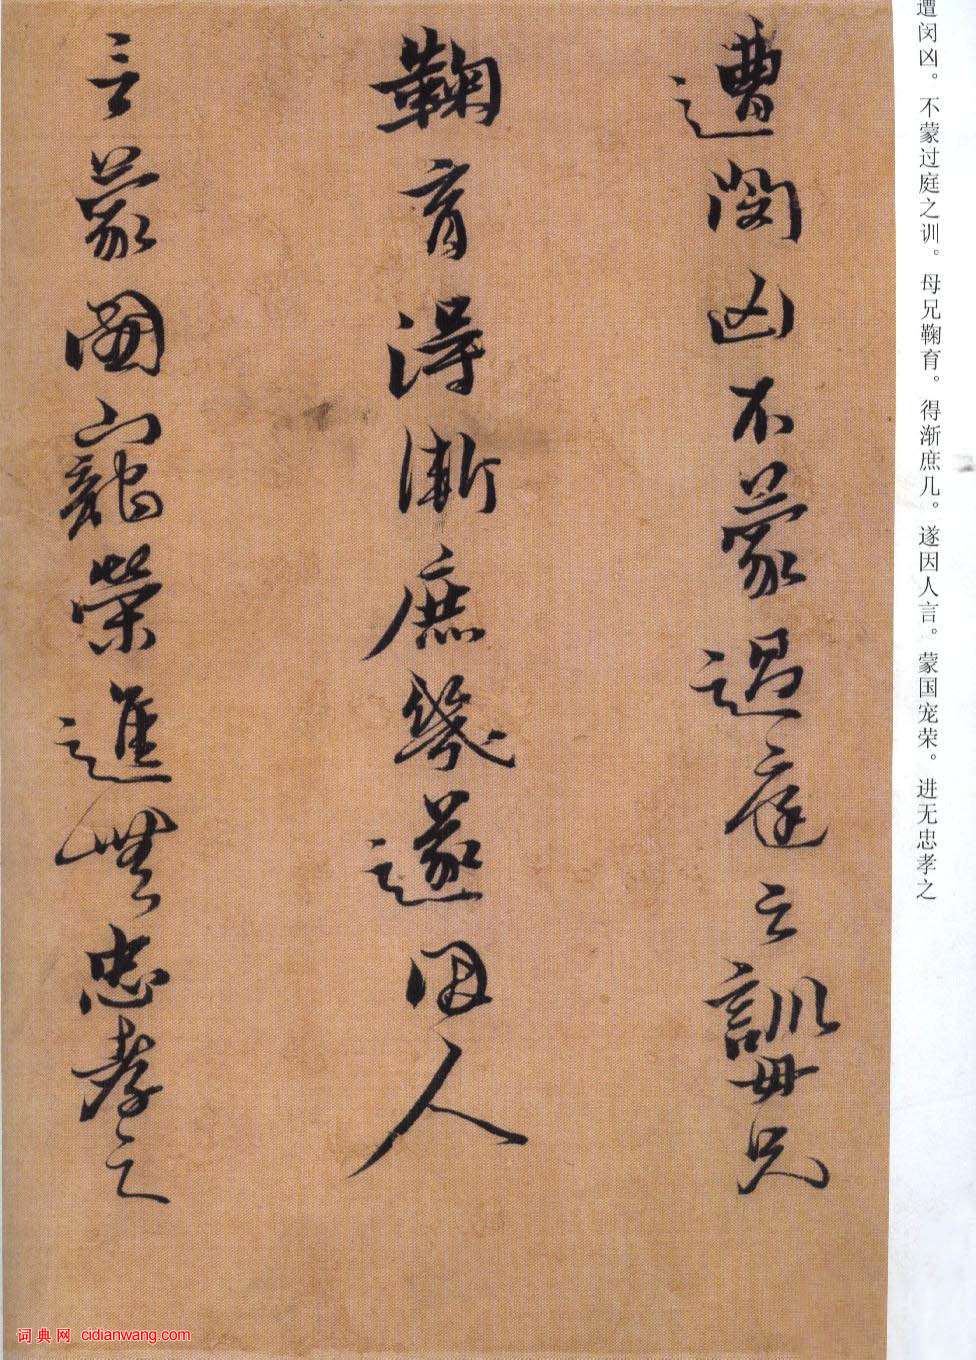 遭闵凶。不蒙过庭之训。母兄鞠育。得渐庶几。遂因人言。蒙国宠荣。进无忠孝之
遭閔凶不蒙過庭之訓母兄
鞠育得漸庶幾遂因人
言蒙國寵榮進無忠孝之
词典网 cidianwang.com